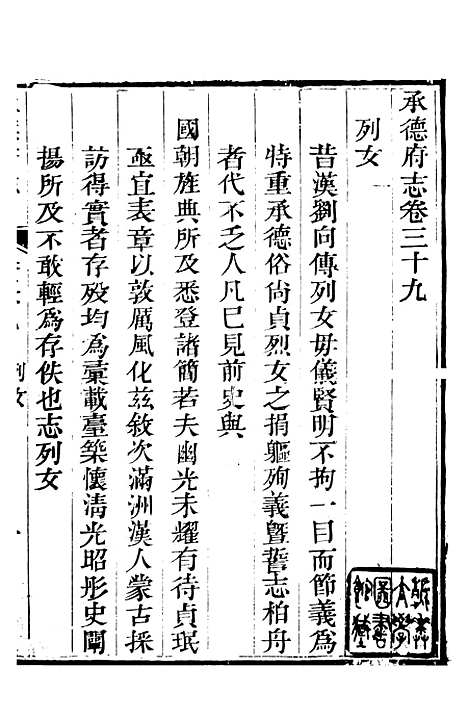 承德府志卷三十九
列女
昔漢劉向傳列女毋儀賢明不拘一目而節義爲
特重承德俗尚貞烈女之捐軀殉義曁誓志柏舟
者代不乏人凡已見前史與
國朝旌典所及悉登諸簡若夫幽光未耀有待貞珉
亟宜表章以敦厲風化茲敘次滿洲漢人蒙古採
訪得實者存歿均爲彙載臺築懷淸光昭彤史闡
揚所及不敢輕爲存佚也志列女
列女